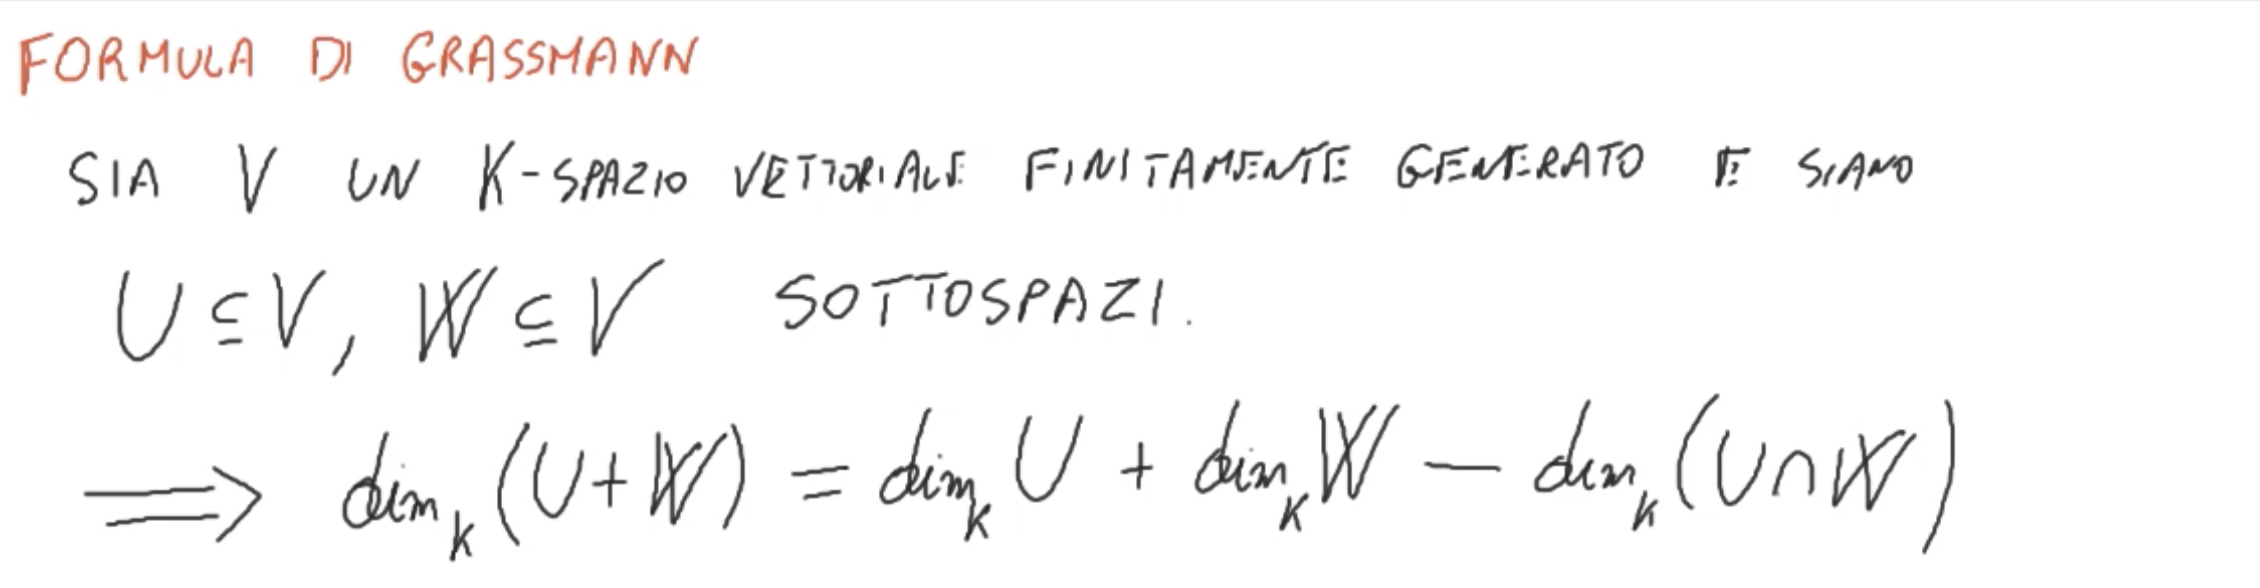 FORMULA DI GRASSMANN
SIA V UN K-SPAZIO VETTORIALE FINITAMENTE GENERATO E SIANO
U ⊆ V, W ⊆ V SOTTOSPAZI.
⟹ dim_K (U+W) = dim_K U + dim_K W − dim_K (U∩W)